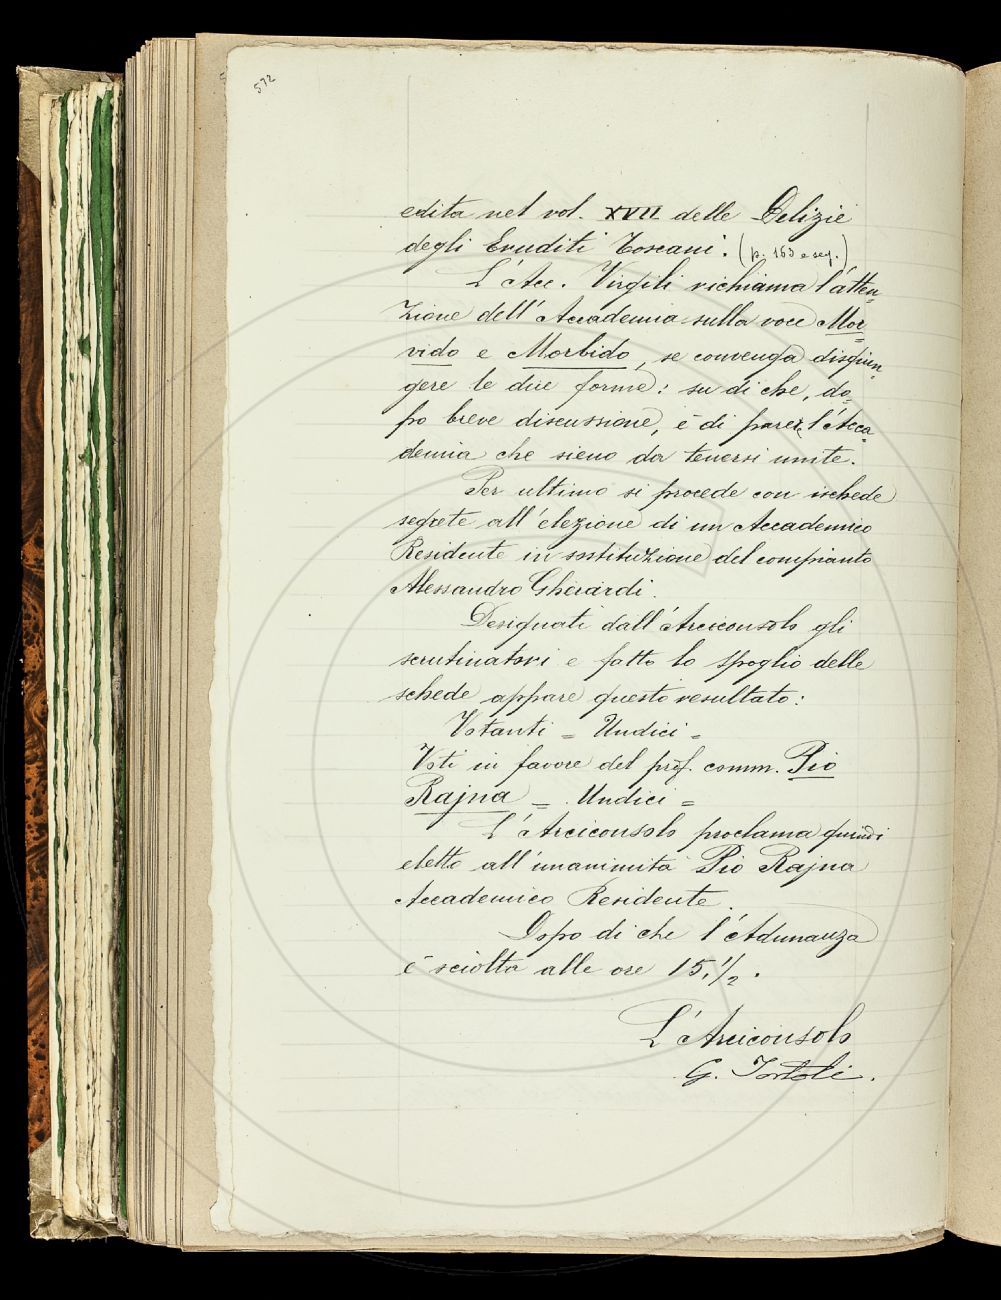 572
edita nel vol. XVII delle Delizie
degli Eruditi Toscani. (p. 163 e seg.)
L'Acc. Virgili richiama l'atten=
zione dell'Accademia sulla voce Mor=
vido e Morbido, se convenga disgiun=
gere le due forme: su di che, do=
po breve discussione, è di parere l'Acca=
demia che sieno da tenersi unite.
Per ultimo si procede con ischede
segrete all'elezione di un Accademico
Residente in sostituzione del compianto
Alessandro Gherardi.
Designati dall'Arciconsolo gli
scrutinatori e fatto lo spoglio delle
schede appare questo resultato:
Votanti = Undici =
Voti in favore del prof. comm. Pio
Rajna = Undici =
L'Arciconsolo proclama quindi
eletto all'unanimità Pio Rajna
Accademico Residente.
Dopo di che l'Adunanza
è sciolta alle ore 15,1/2.
L'Arciconsolo
G. Tortoli.